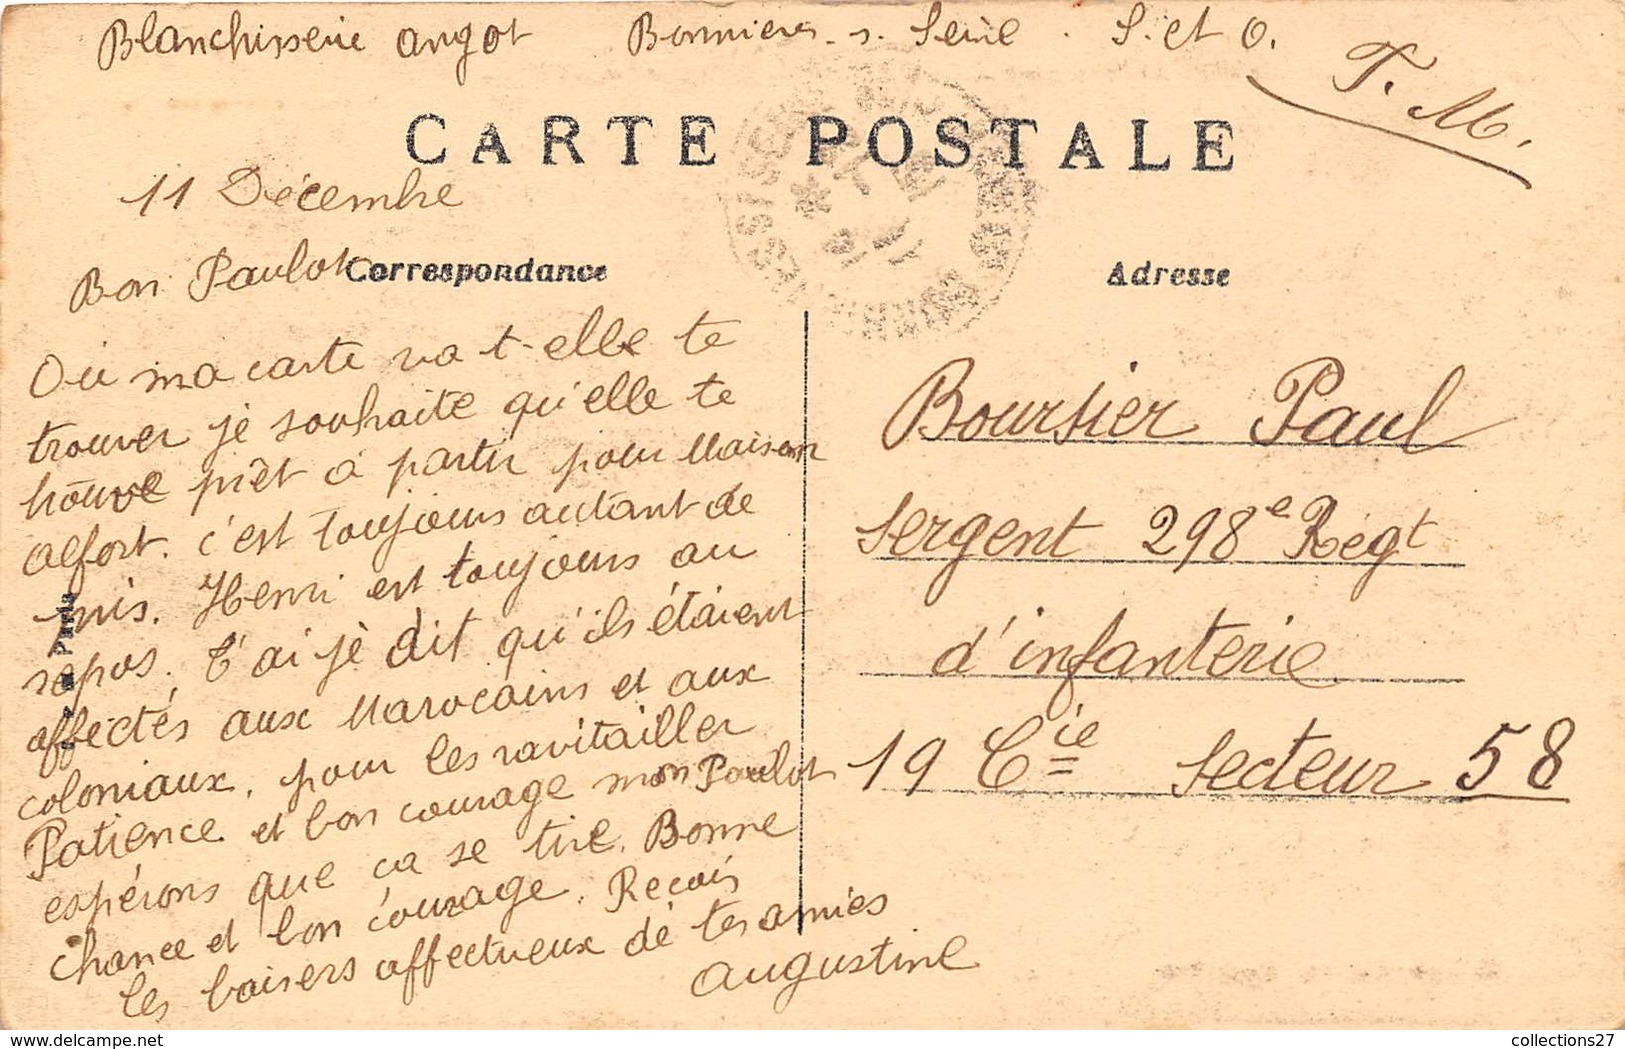 Blanchisserie Angot Bonnières. s. Seine. S. et O.
F. M.
CARTE POSTALE
11 Décembre
Bon Paulot
Correspondance
Où ma carte va t-elle te
trouver je souhaite qu'elle te
trouve prêt à partir pour Maison
alfort. c'est toujours autant de
pris. Henri est toujours au
repos. T'ai je dit qu'ils étaient
affectés aux Marocains et aux
coloniaux, pour les ravitailler
Patience et bon courage mon Paulot
espérons que ça se tire. Bonne
chance et bon courage. Reçois
les baisers affectueux de tes amies
Augustine
Adresse
Boursier Paul
Sergent 298e Régt
d'infanterie
19 Cie Secteur 58
Paris
collections27